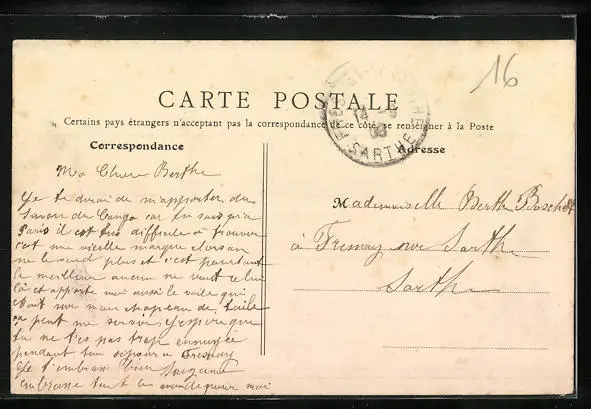 16
CARTE POSTALE
Certains pays étrangers n'acceptant pas la correspondance de ce côté, se renseigner à la Poste
Correspondance
Adresse
FRESNAY-S-SARTHE
14 -9
08
SARTHE
Ma Chere Berthe
Je te dirai de m'apporter du
Savon du Congo car tu sais qu'a
Paris il est très difficile a trouver
c'est une vieille marque
ne le vend plus et c'est pourtant
le meilleur aucun ne vaut celui
là et apporte moi aussi le voile qui
était sur mon chapeau de
ça peut me servir j'espère que
tu ne t'es pas trop ennuyée
pendant ton séjour a Fresnay
Je t'embrasse bien Suzanne
embrasse tout le monde pour moi
Mademoiselle Berthe
à Fresnay sur Sarthe
Sarthe